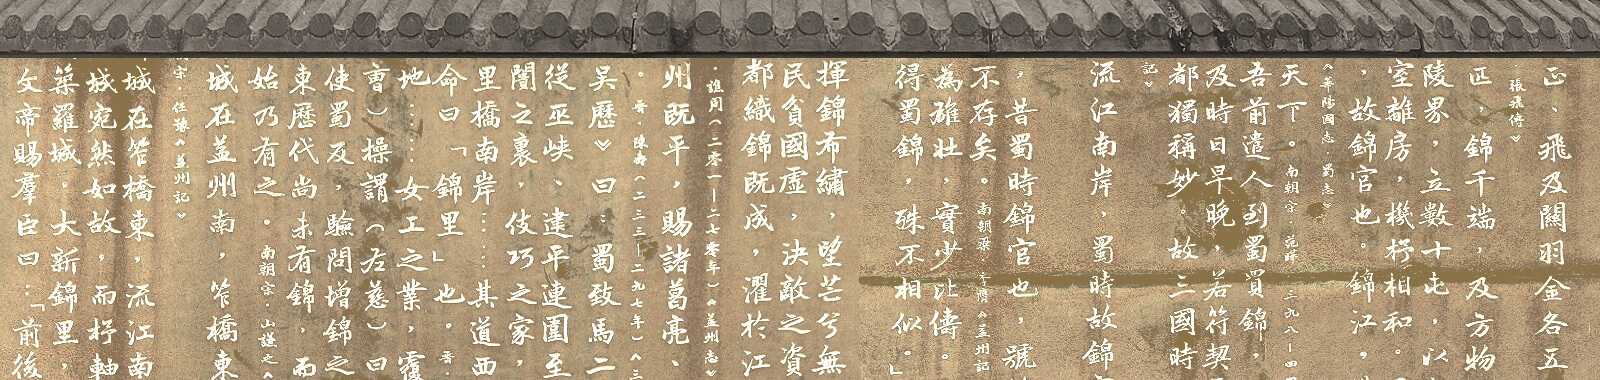 正、飛及關羽金各五
·張飛傳》
匹,錦千端,及方物
陵界,立數十屯,以
室離房,機杼相和。
,故錦官也。錦江,
《華陽國志 蜀志》
天下。南朝宋 范曄 三九八—四
吾前遣人到蜀買錦,
及時日早晚,若符契
都獨稱妙。故三國時
記》
流江南岸,蜀時故錦
,昔蜀時錦官也,號
不存矣。南朝梁 李膺《益州記
為雄壯,實少比儔。
得蜀錦,殊不相似。」
揮錦布繡,望芒兮無
民貧國虛,決敵之資
都織錦既成,濯於江
·譙周(二零一—二七零年)《益州志》
州既平,賜諸葛亮、
·晉·陳壽(二三三—二九七年)《三
吳歷》曰:蜀致馬二
從巫峽、建平連圍至
闠之裏,伎巧之家,
里橋南岸……其道西
命曰「錦里」也。晉·
地……女工之業,覆
曹)操謂(左慈)曰
使蜀反,驗問增錦之
東歷代尚未有錦,而
始乃有之。南朝宋·山謙之《
城在益州南,笮橋東
宋·任豫《益州記》
城在笮橋東,流江南
城宛然如故,而杼軸
築羅城。大新錦里,
文帝賜羣臣曰:「前後